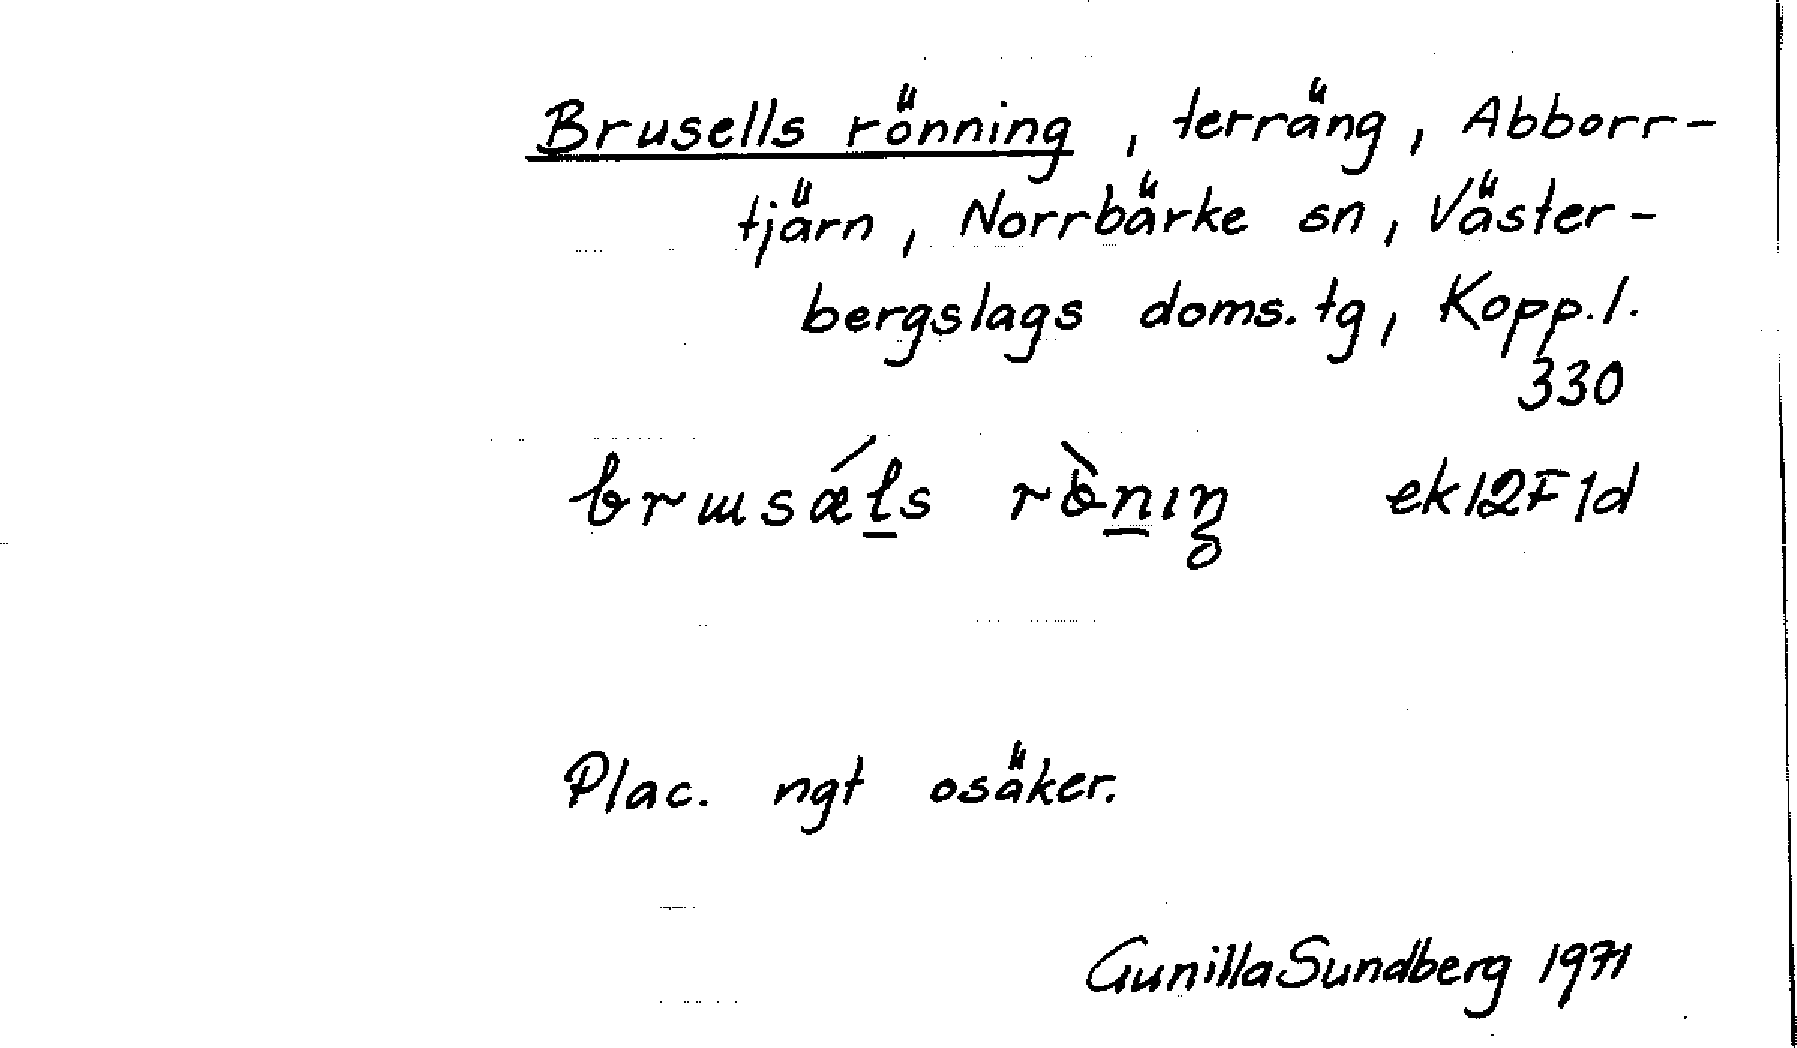 Brusells rönning, terräng, Abborr-
tjärn, Norrbärke sn, Väster-
bergslags doms.tg, Kopp.l.
330
brɯsǽl̲s rɵ̀n̲ıŋ ek12F1d
Plac. ngt osäker.
Gunilla Sundberg 1971